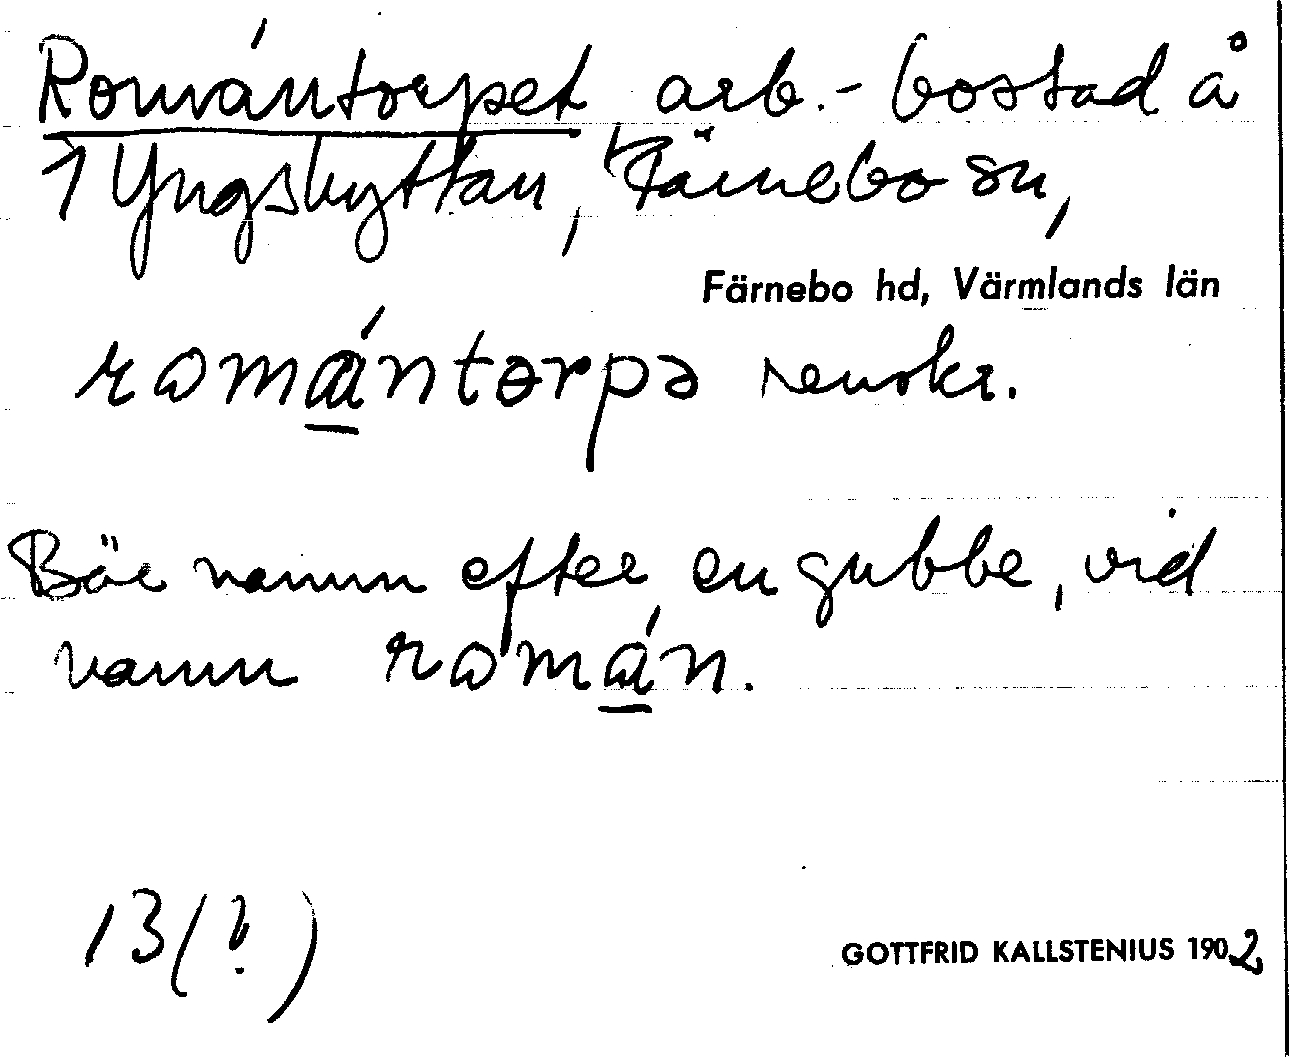 Romántorpet arb.-bostad å
1 Yngshyttan, Färnebo sn,
Färnebo hd, Värmlands län
romántorpə renskr.
Bär namn efter en gubbe, vid
namn román.
13(?)
GOTTFRID KALLSTENIUS 1902